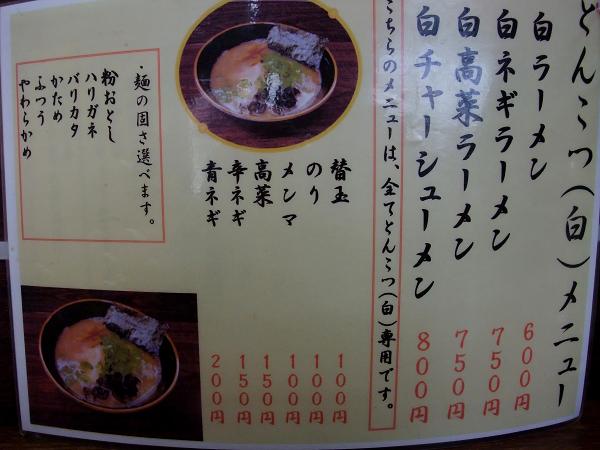 とんこつ(白)メニュー
白ラーメン 600円
白ネギラーメン 750円
白高菜ラーメン 750円
白チャーシューメン 800円
こちらのメニューは、全てとんこつ(白)専用です。
替玉 100円
のり 100円
メンマ 100円
高菜 150円
辛ネギ 150円
青ネギ 200円
・麺の固さ選べます。
粉おとし
ハリガネ
バリカタ
かため
ふつう
やわらかめ